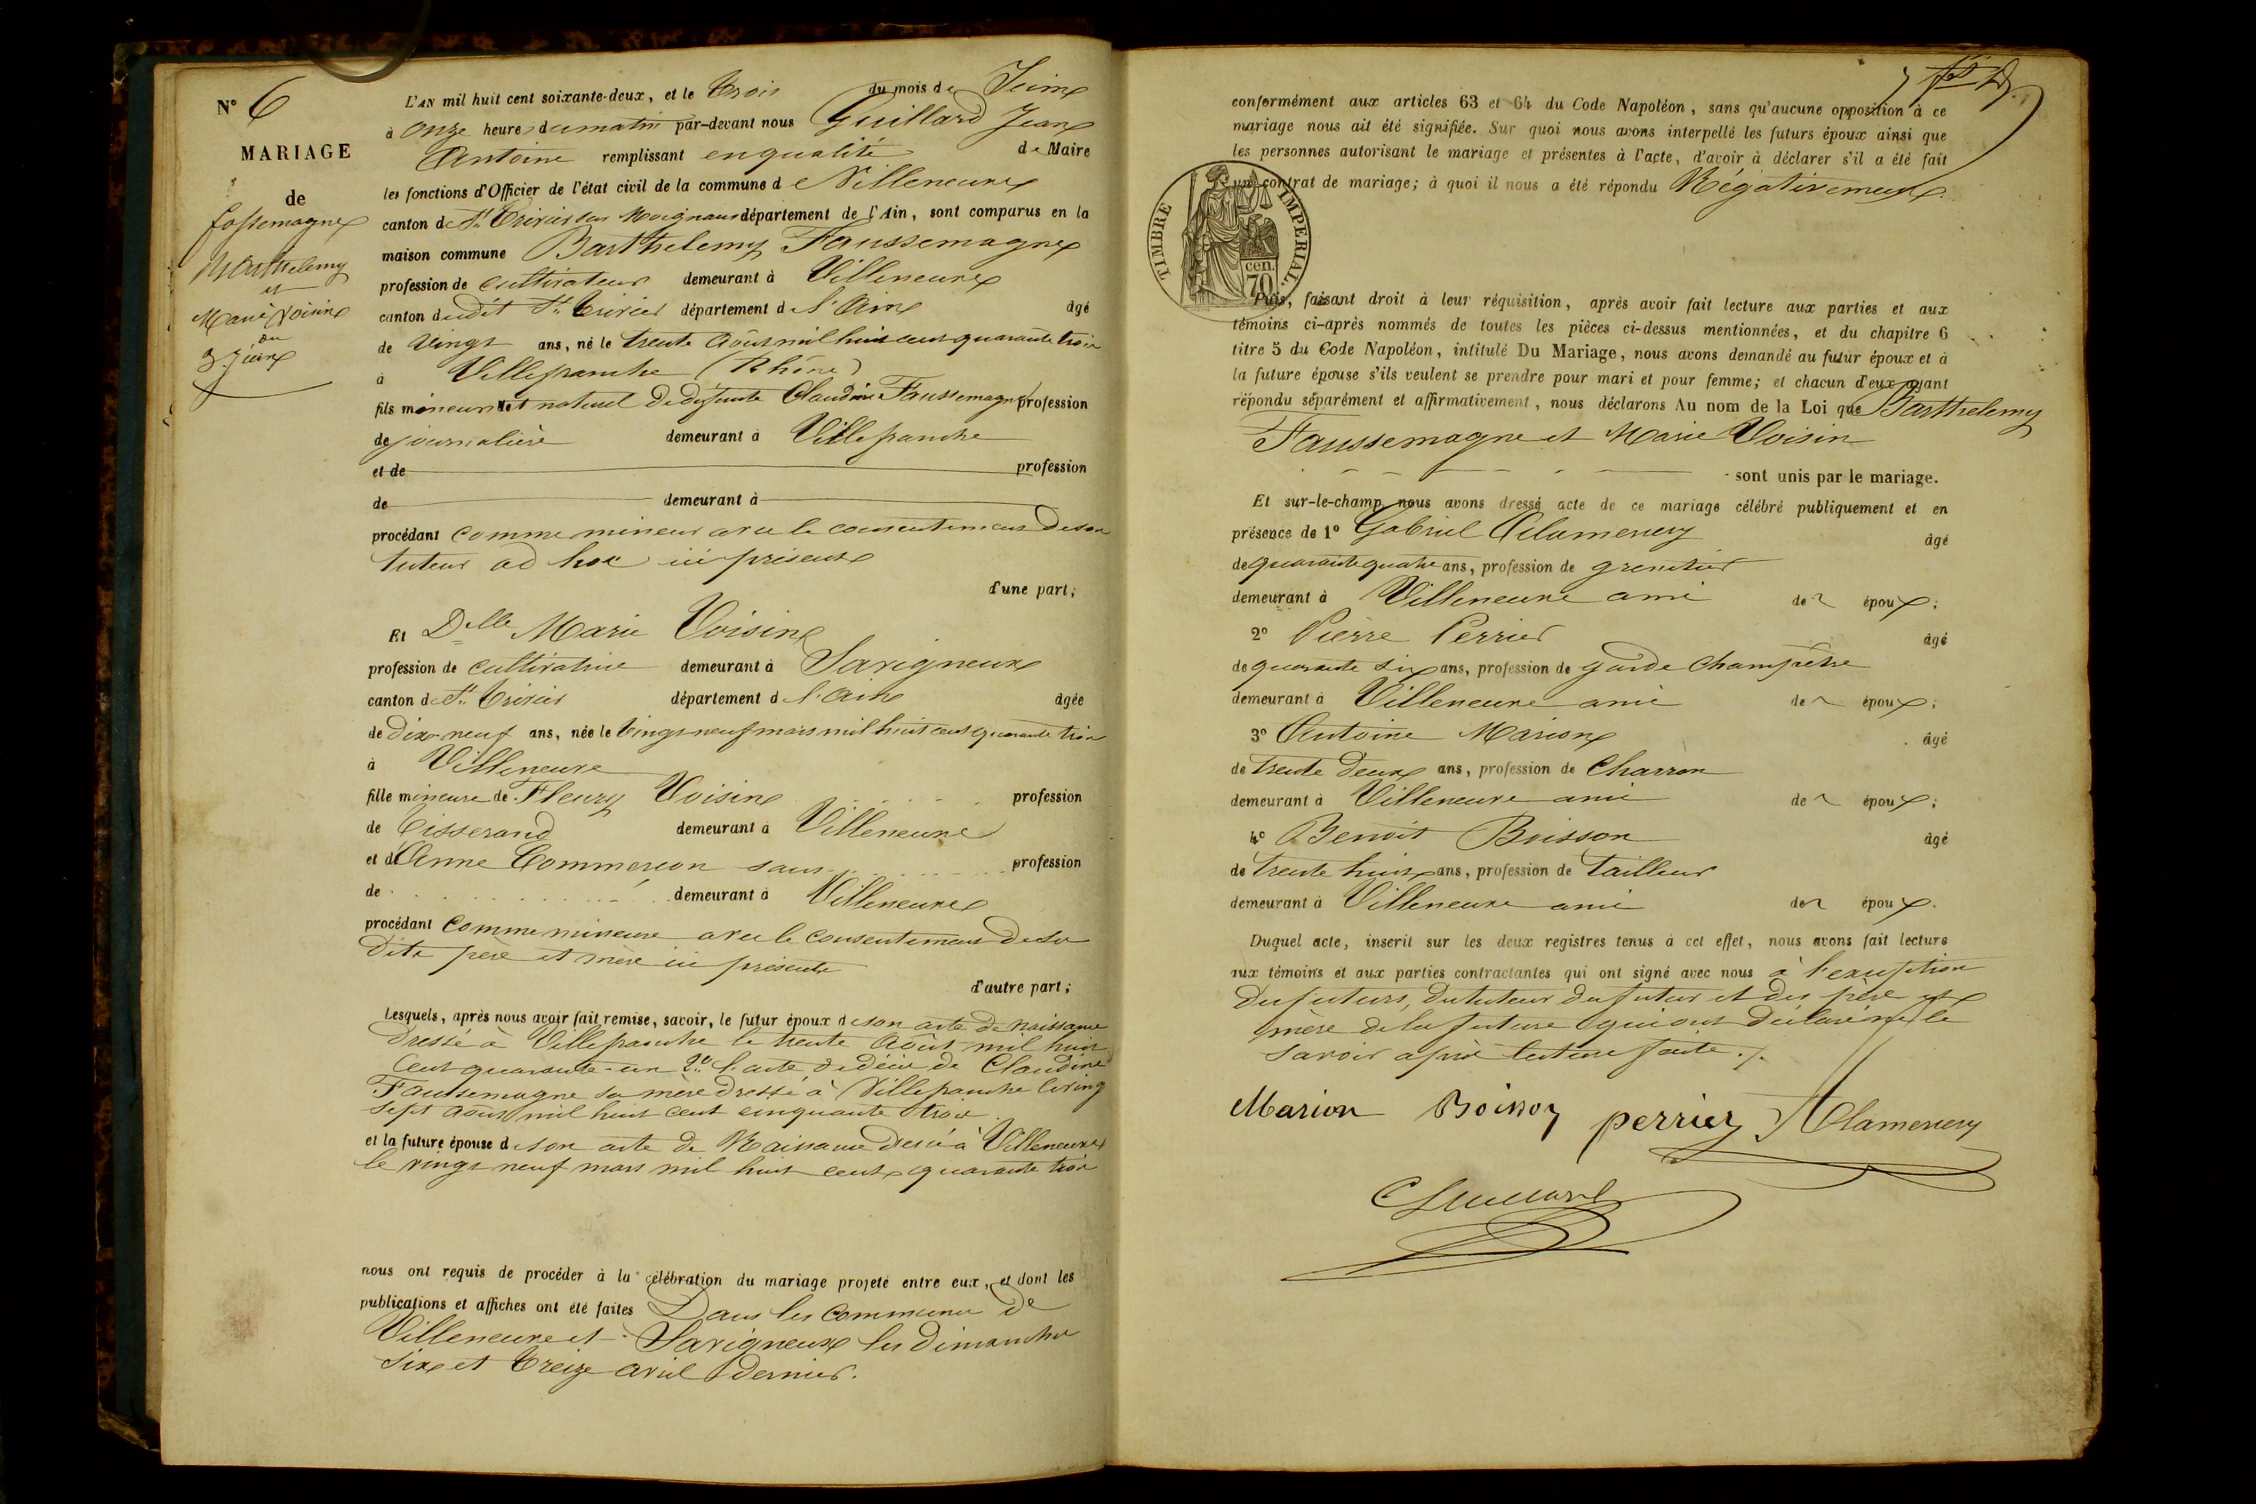 N° 6
MARIAGE
de
Fossemagne
Barthelemy
et
Marie Voisin
du
3 Juin
L'AN mil huit cent soixante-deux, et le trois du mois de Juin
à onze heures du matin par-devant nous Guillard Jean
Antoine remplissant en qualité de Maire
les fonctions d'Officier de l'état civil de la commune de Villeneuve
canton de St Trivier sur Moignans département de l'Ain, sont comparus en la
maison commune Barthelemy Faussemagne
profession de cultivateur demeurant à Villeneuve
canton dudit St Trivier département de l'Ain âgé
de vingt ans, né le trente Août mil huit cent quarante trois
à Villefranche (Rhône)
fils mineur et naturel de défunte Claudine Faussemagne profession
de journalière demeurant à Villefranche
et de profession
de demeurant à
procédant comme mineur avec le consentement de son
tuteur ad hoc ici présent
d'une part;
Et Delle Marie Voisin
profession de cultivatrice demeurant à Savigneux
canton de St Trivier département de l'Ain âgée
de dix neuf ans, née le vingt neuf mars mil huit cent quarante trois
à Villeneuve
fille mineure de Fleury Voisin profession
de Tisserand demeurant à Villeneuve
et d'Anne Commercon sans profession
de demeurant à Villeneuve
procédant comme mineure avec le consentement de sa
dite père et mère ici présente
d'autre part;
Lesquels, après nous avoir fait remise, savoir, le futur époux de son acte de naissance
dressé à Villefranche le trente Août mil huit
cent quarante-un 2° l'acte de décès de Claudine
Faussemagne sa mère dressé à Villefranche le vingt
sept août mil huit cent cinquante trois.
et la future épouse de son acte de Naissance dressé à Villeneuve
le vingt neuf mars mil huit cent quarante trois
nous ont requis de procéder à la célébration du mariage projeté entre eux, et dont les
publications et affiches ont été faites Dans les communes de
Villeneuve et Savigneux les dimanches
six et treize avril dernier.
conformément aux articles 63 et 64 du Code Napoléon, sans qu'aucune opposition à ce
mariage nous ait été signifiée. Sur quoi nous avons interpellé les futurs époux ainsi que
les personnes autorisant le mariage et présentes à l'acte, d'avoir à déclarer s'il a été fait
un contrat de mariage; à quoi il nous a été répondu Négativement.
TIMBRE IMPERIAL.
70 cen.
Puis, faisant droit à leur réquisition, après avoir fait lecture aux parties et aux
témoins ci-après nommés de toutes les pièces ci-dessus mentionnées, et du chapitre 6
titre 5 du Code Napoléon, intitulé Du Mariage, nous avons demandé au futur époux et à
la future épouse s'ils veulent se prendre pour mari et pour femme; et chacun d'eux ayant
répondu séparément et affirmativement, nous déclarons Au nom de la Loi que Barthelemy
Faussemagne et Marie Voisin
sont unis par le mariage.
Et sur-le-champ, nous avons dressé acte de ce mariage célébré publiquement et en
présence de 1° Gabriel Alamercery âgé
de quarante quatre ans, profession de grenetier
demeurant à Villeneuve ami des époux;
2° Pierre Perrier âgé
de quarante six ans, profession de garde Champêtre
demeurant à Villeneuve ami des époux;
3° Antoine Marion âgé
de trente deux ans, profession de Charron
demeurant à Villeneuve ami des époux;
4° Benoit Boisson âgé
de trente huit ans, profession de tailleur
demeurant à Villeneuve ami des époux.
Duquel acte, inscrit sur les deux registres tenus à cet effet, nous avons fait lecture
aux témoins et aux parties contractantes qui ont signé avec nous à l'exception
des futurs, du tuteur du futur et des père et
mère de la future qui ont déclaré ne le
savoir après lecture faite.
Marion Boisson perrier Alamercery
Guillard